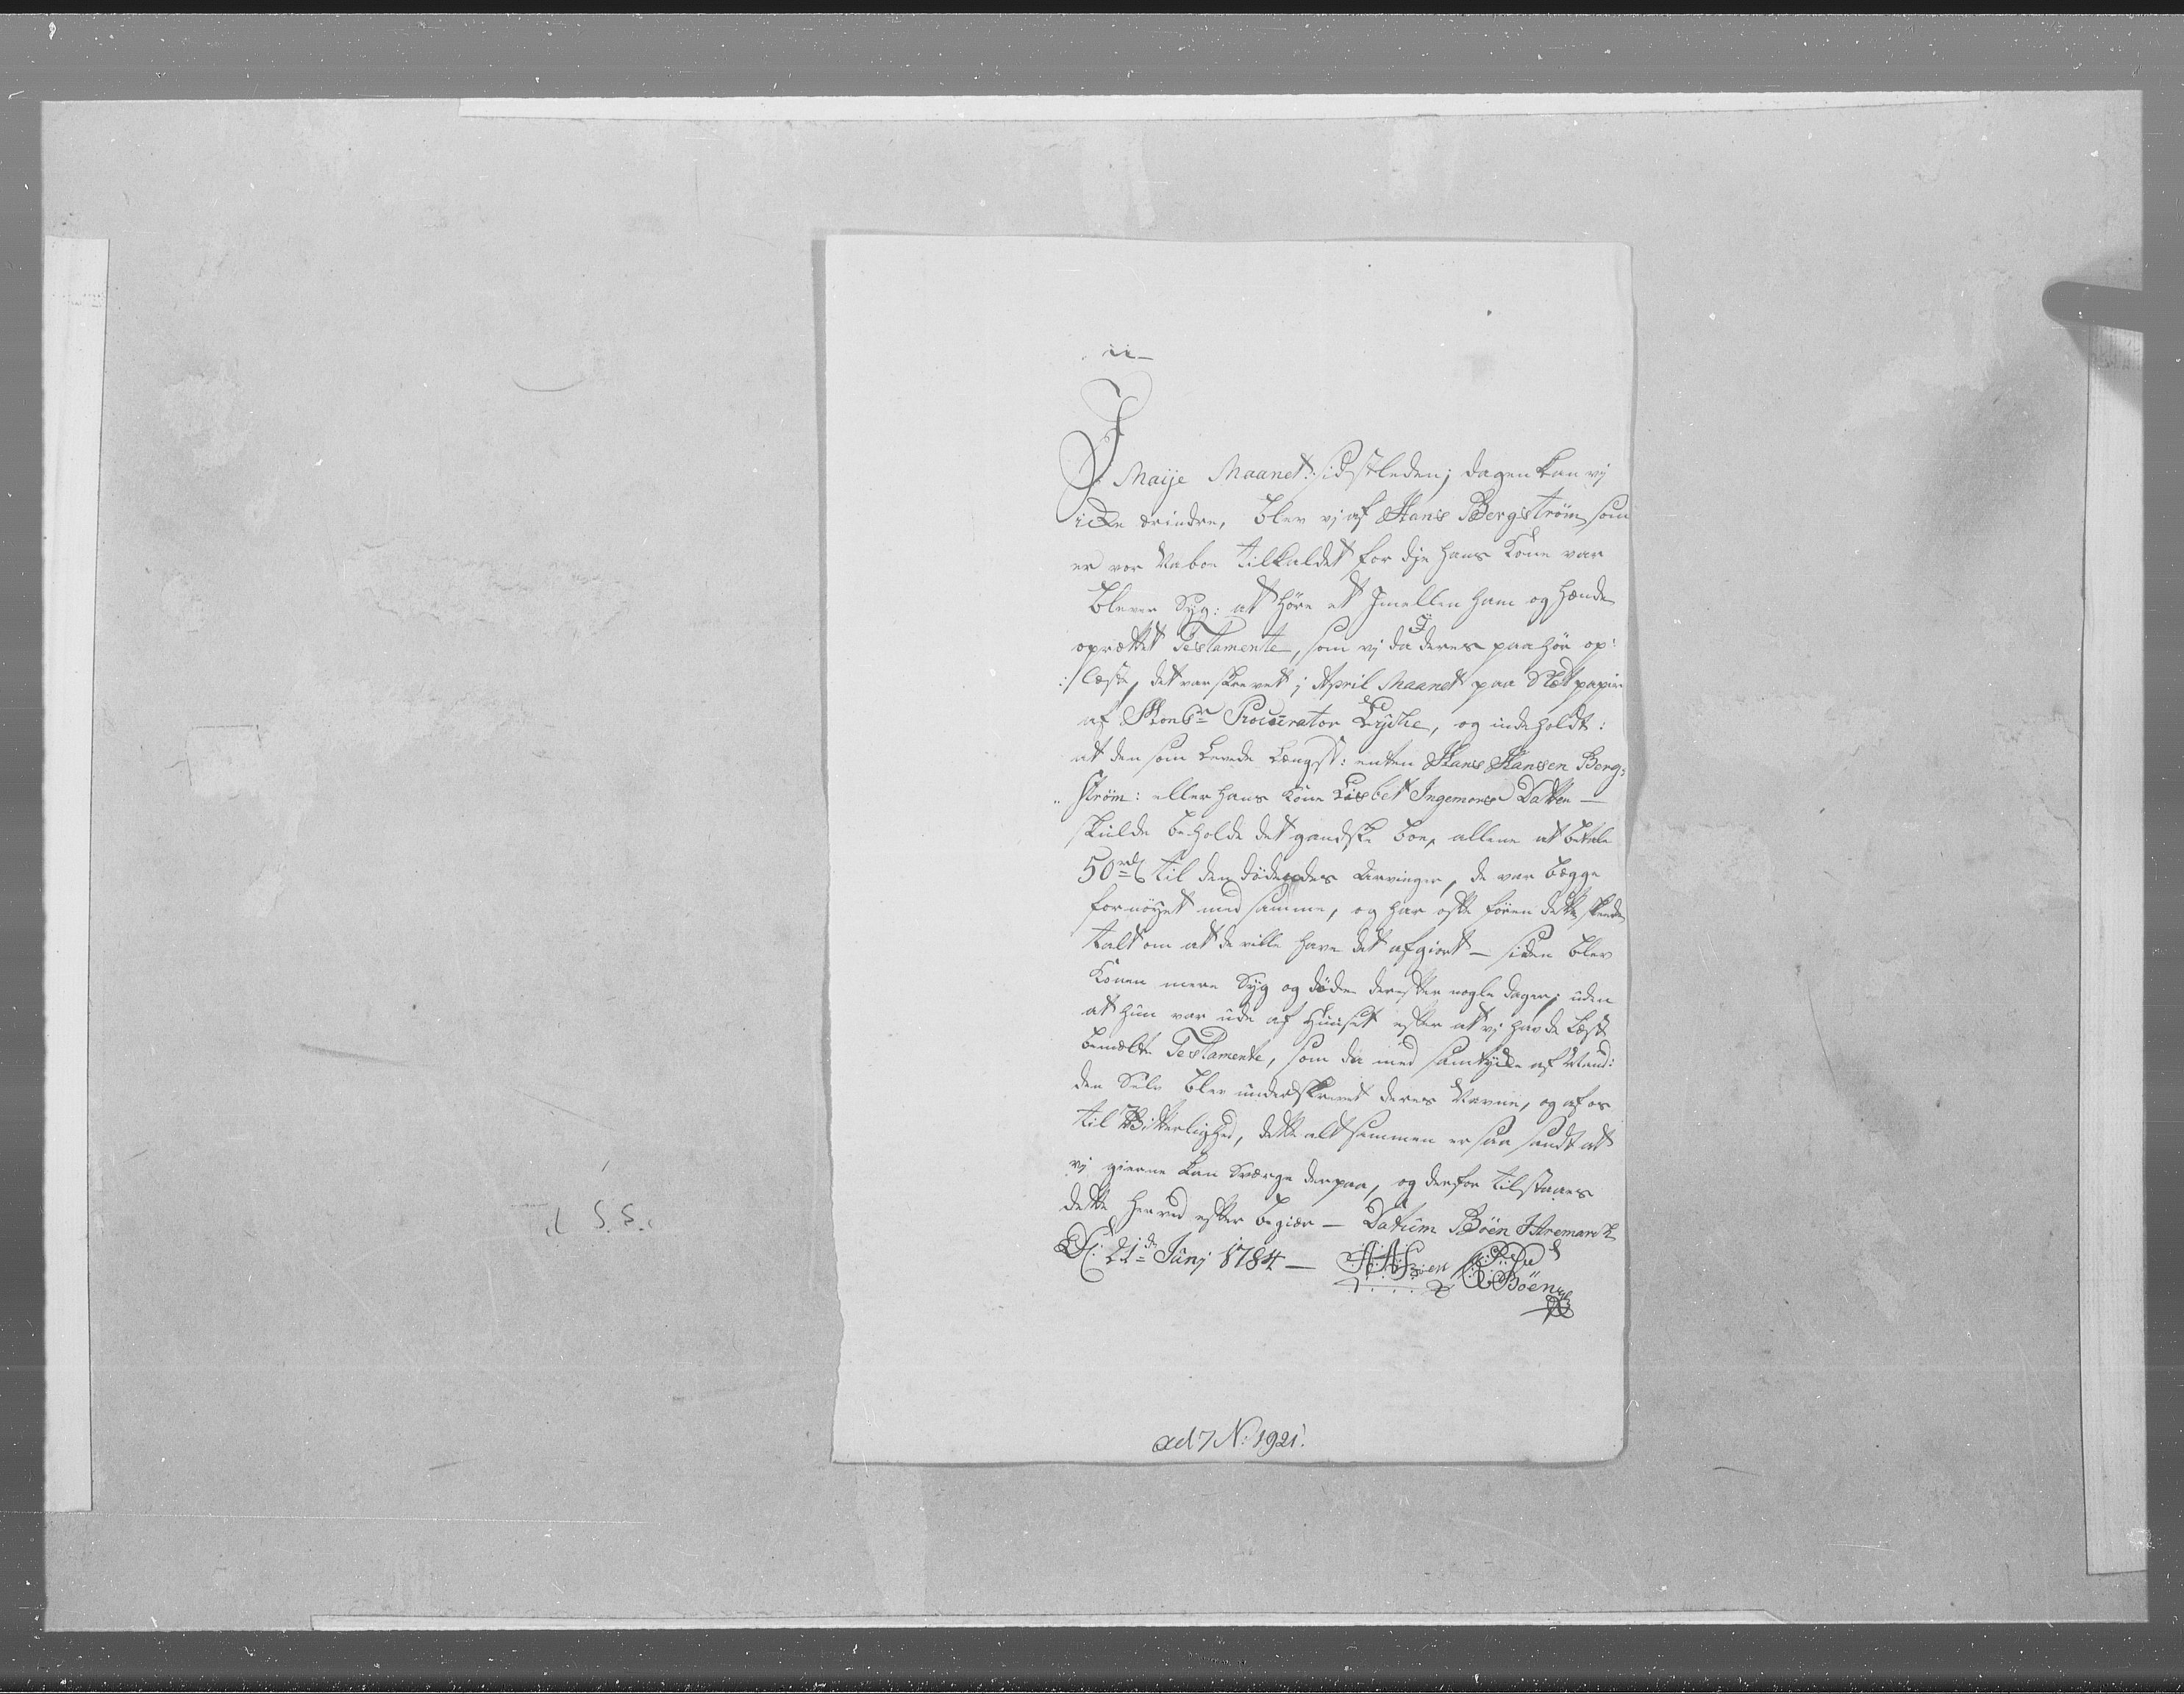 I Maije Maanet: sidstleden; dagen kan vj
icke erindre, blev vj af Hans Bergstrøm som
er vor Naboe tilkaldet for dje hans Kone var
bleven Syg: at høre et Imellem ham og hænde
oprættet Testamente, som vj da j deres paahør op:
:/læste, det var skrevet j April Maanet paa Slet papiir
af Monsr Procurator Lyche, og indeholdt:
at den som Levede Længst: enten Hans Hansen Berg:
"strøm: eller hans Kone Lisbet Ingemors Datter —
skulde beholde det gandske Boe, allene at betale
50 rd til den dødendes Arvinger, de var begge
fornøyet med samme, og har ofte føren dette skeede
talt om at de ville have det afgiort — siden blev
Konen mere Syg og døde derefter nogle dager; uden
at hun var ude af Huuset efter at vj havde læst
bemelte Testamente, som da med samtycke af Mand:
den Selv blev underskrevet deres Navne, og af os
til Vitterlighed, dette alt sammen er saa sandt att
vj gierne kan Sværge derpaa, og derfor tilstaaes
dette herved efter begiær — Datum Böen j Aremarck
D: 21de Junj 1784 —
Böen
ad 7 No: 1921.